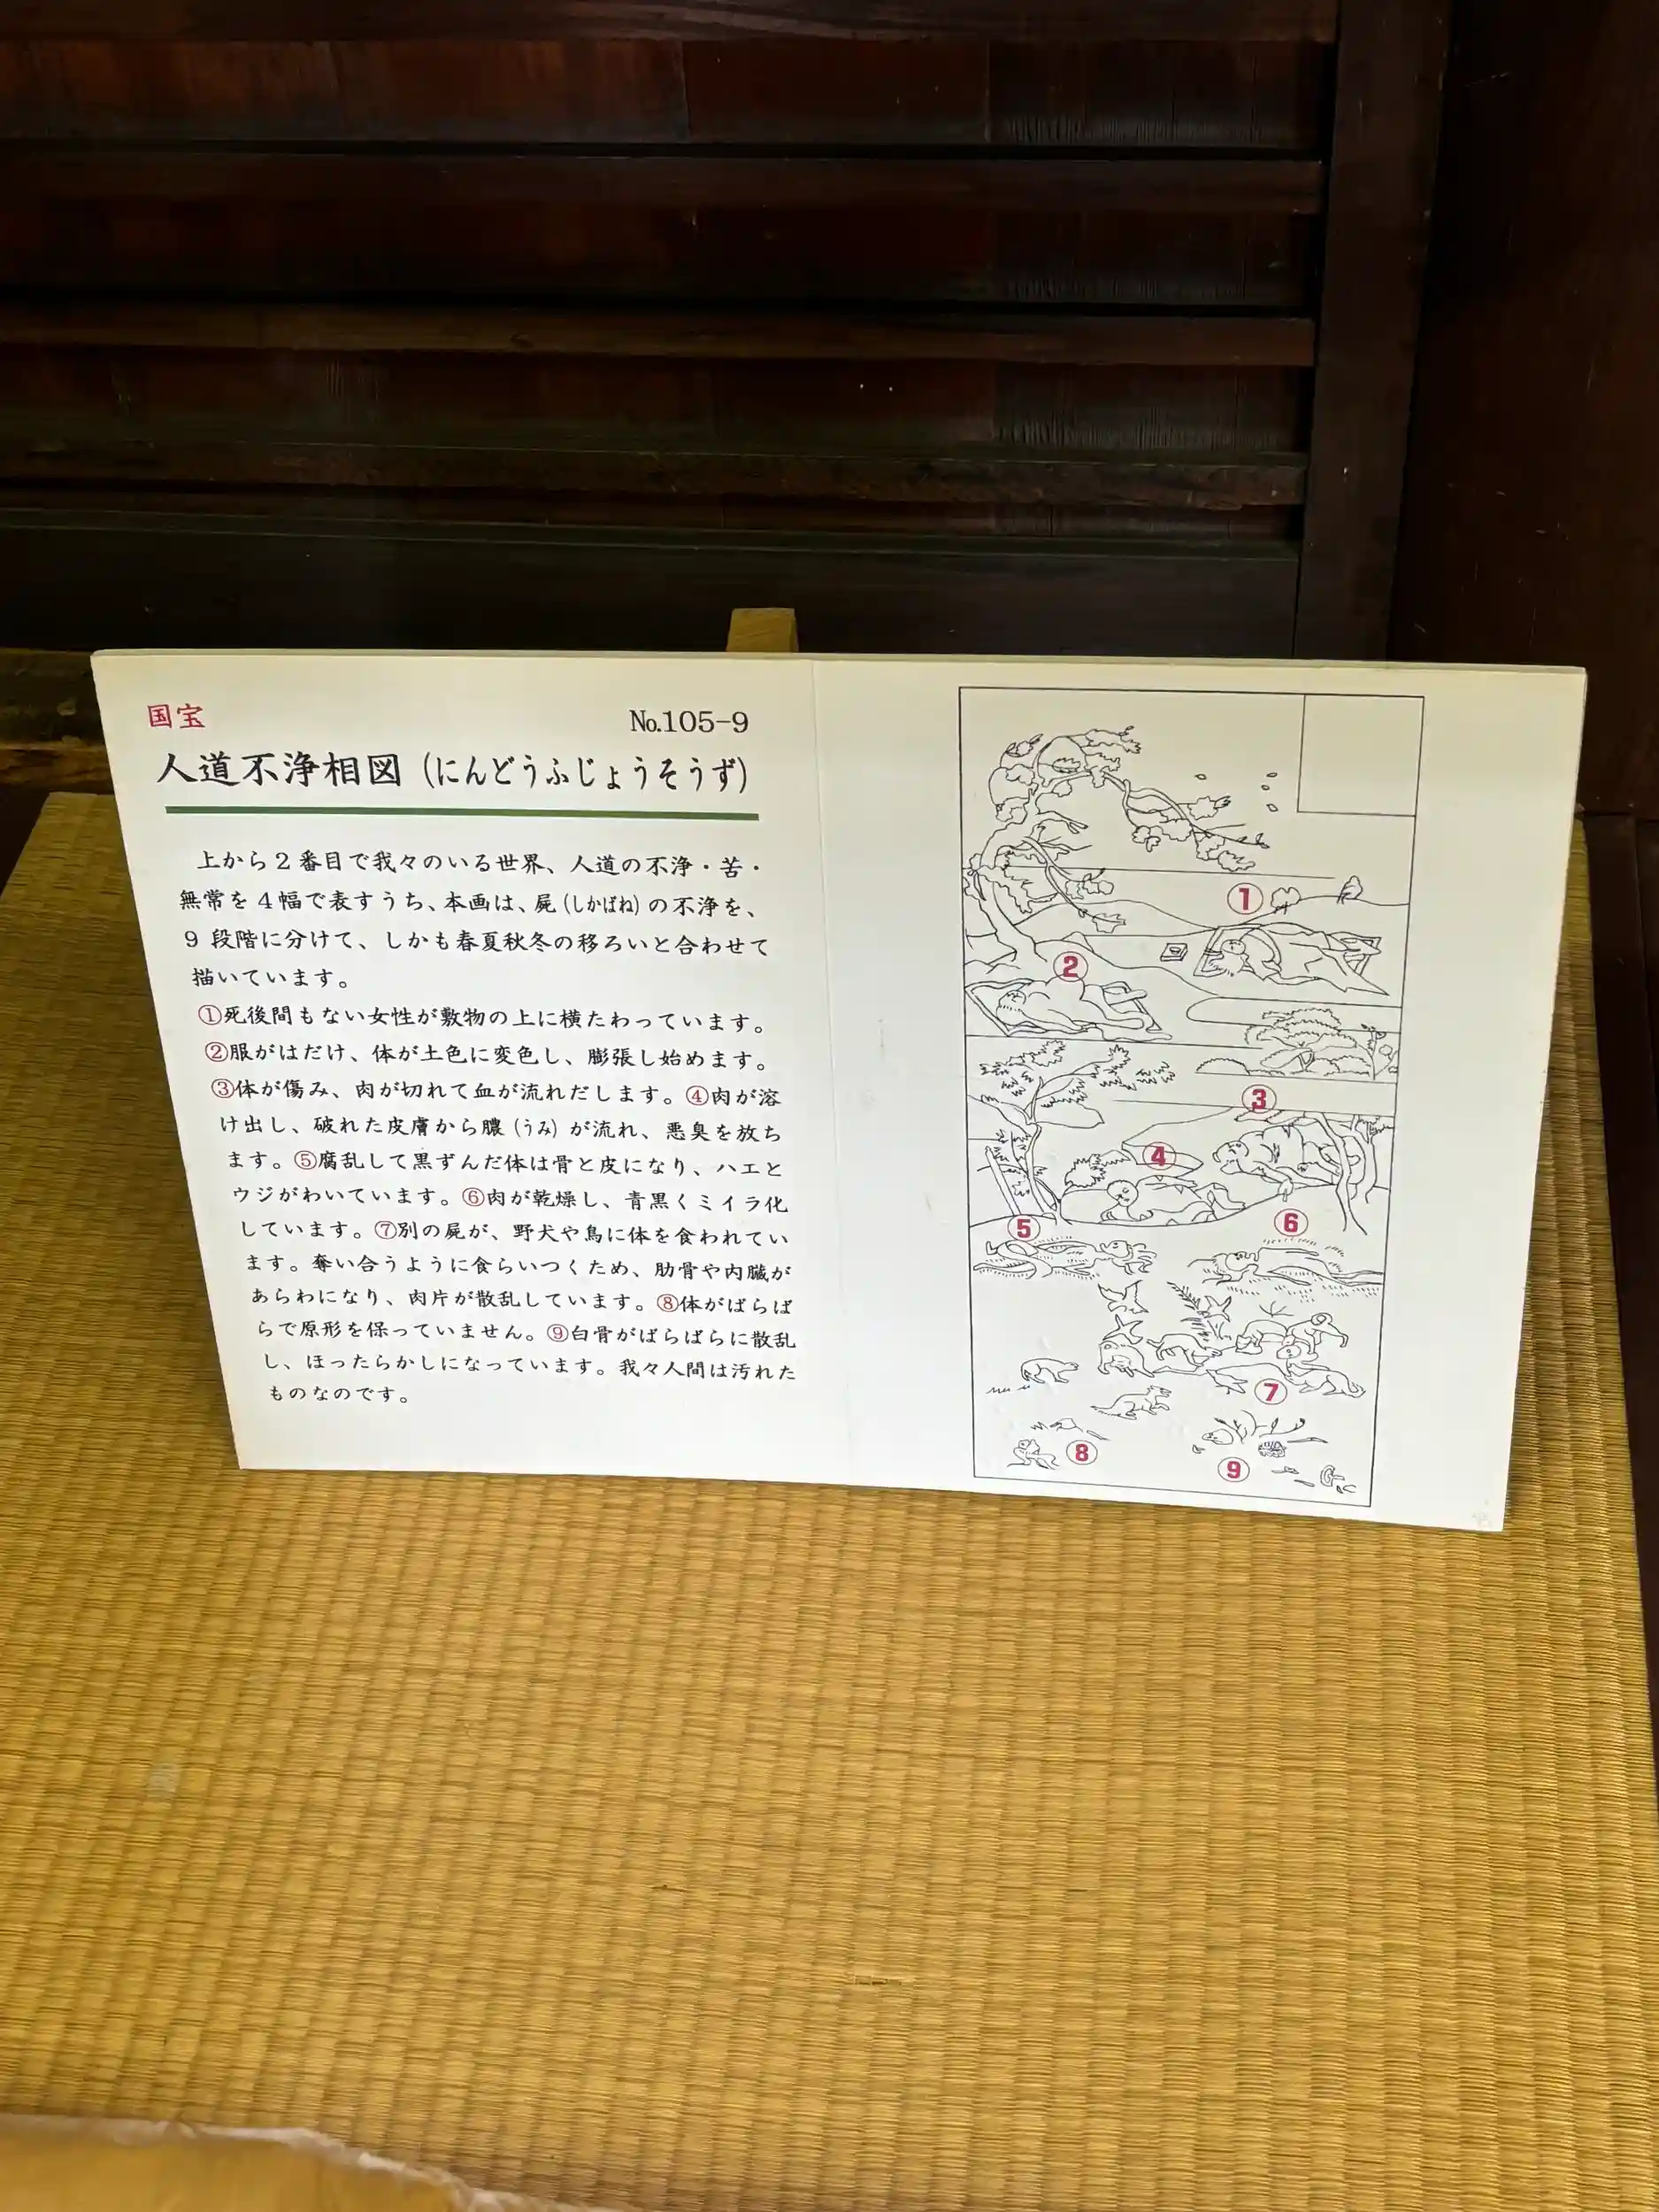 国宝
No.105-9
人道不浄相図（にんどうふじょうそうず）
上から2番目で我々のいる世界、人道の不浄・苦・
無常を4幅で表すうち、本画は、屍（しかばね）の不浄を、
9段階に分けて、しかも春夏秋冬の移ろいと合わせて
描いています。
①死後間もない女性が敷物の上に横たわっています。
②服がはだけ、体が土色に変色し、膨張し始めます。
③体が傷み、肉が切れて血が流れだします。④肉が溶
け出し、破れた皮膚から膿（うみ）が流れ、悪臭を放ち
ます。⑤腐乱して黒ずんだ体は骨と皮になり、ハエと
ウジがわいています。⑥肉が乾燥し、青黒くミイラ化
しています。⑦別の屍が、野犬や鳥に体を食われてい
ます。奪い合うように食らいつくため、肋骨や内臓が
あらわになり、肉片が散乱しています。⑧体がばらば
らで原形を保っていません。⑨白骨がばらばらに散乱
し、ほったらかしになっています。我々人間は汚れた
ものなのです。
①
②
③
④
⑤
⑥
⑦
⑧
⑨